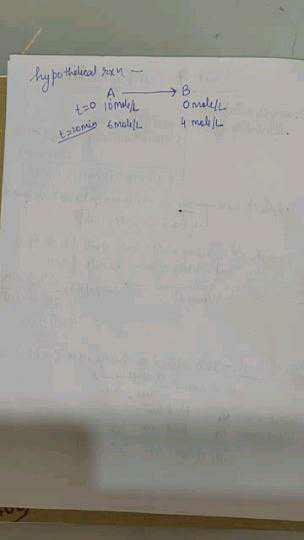 hypothetical rxn —
A → B
t=0 10 mole/L 0 mole/L
t=20min 6 mole/L 4 mole/L